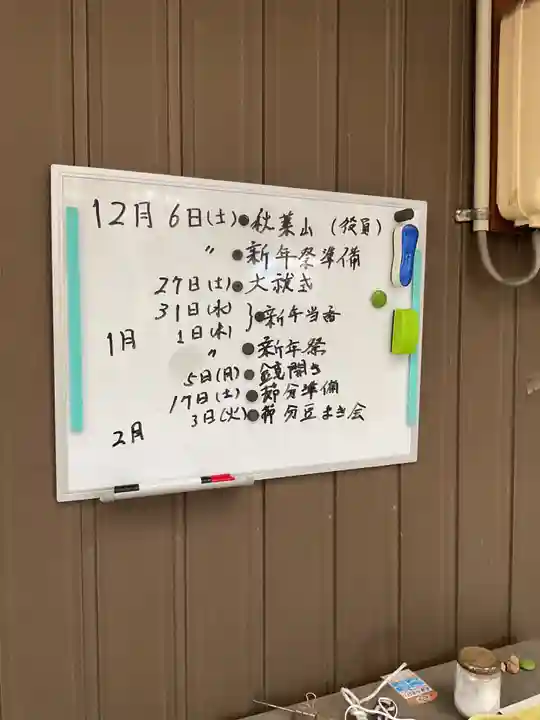 12月 6日(土)●秋葉山(役員)
〃 ●新年祭準備
27日(土)●大祓式
31日(水)
1月 1日(木) }●新年当番
〃 ●新年祭
5日(月)●鏡開き
17日(土)●節分準備
2月 3日(火)●節分豆まき会